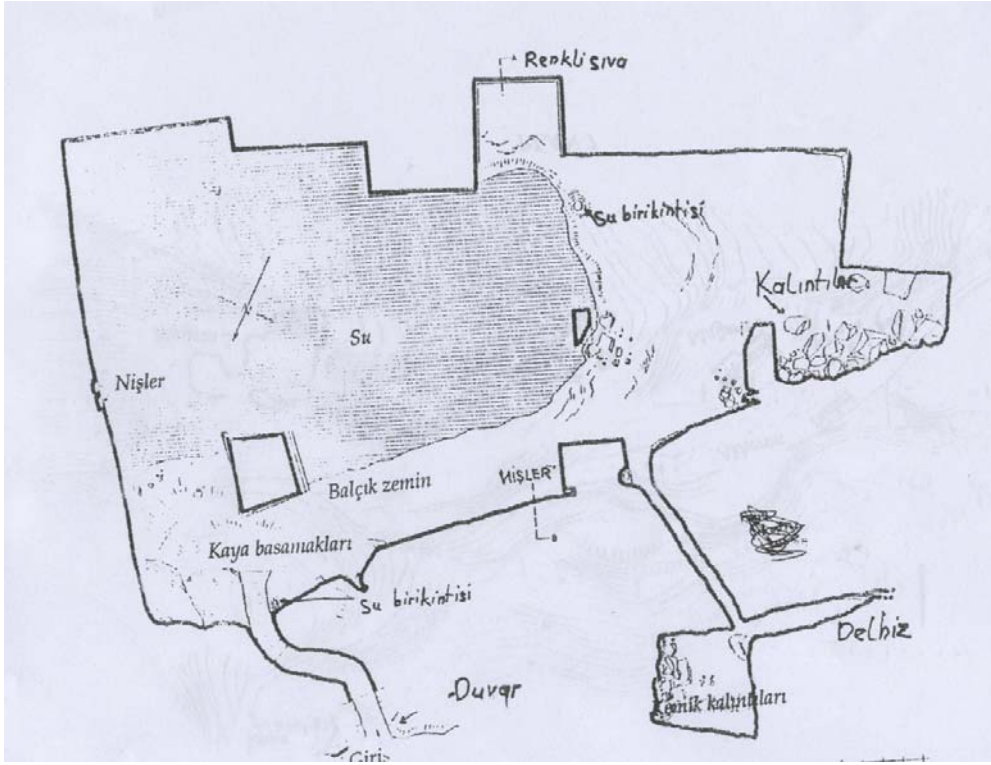 Renkli sıva
Su birikintisi
Kalıntılar
Su
Nişler
NİŞLER
Balçık zemin
Kaya basamakları
Su birikintisi
Delhiz
Duvar
Kemik kalıntıları
Giriş